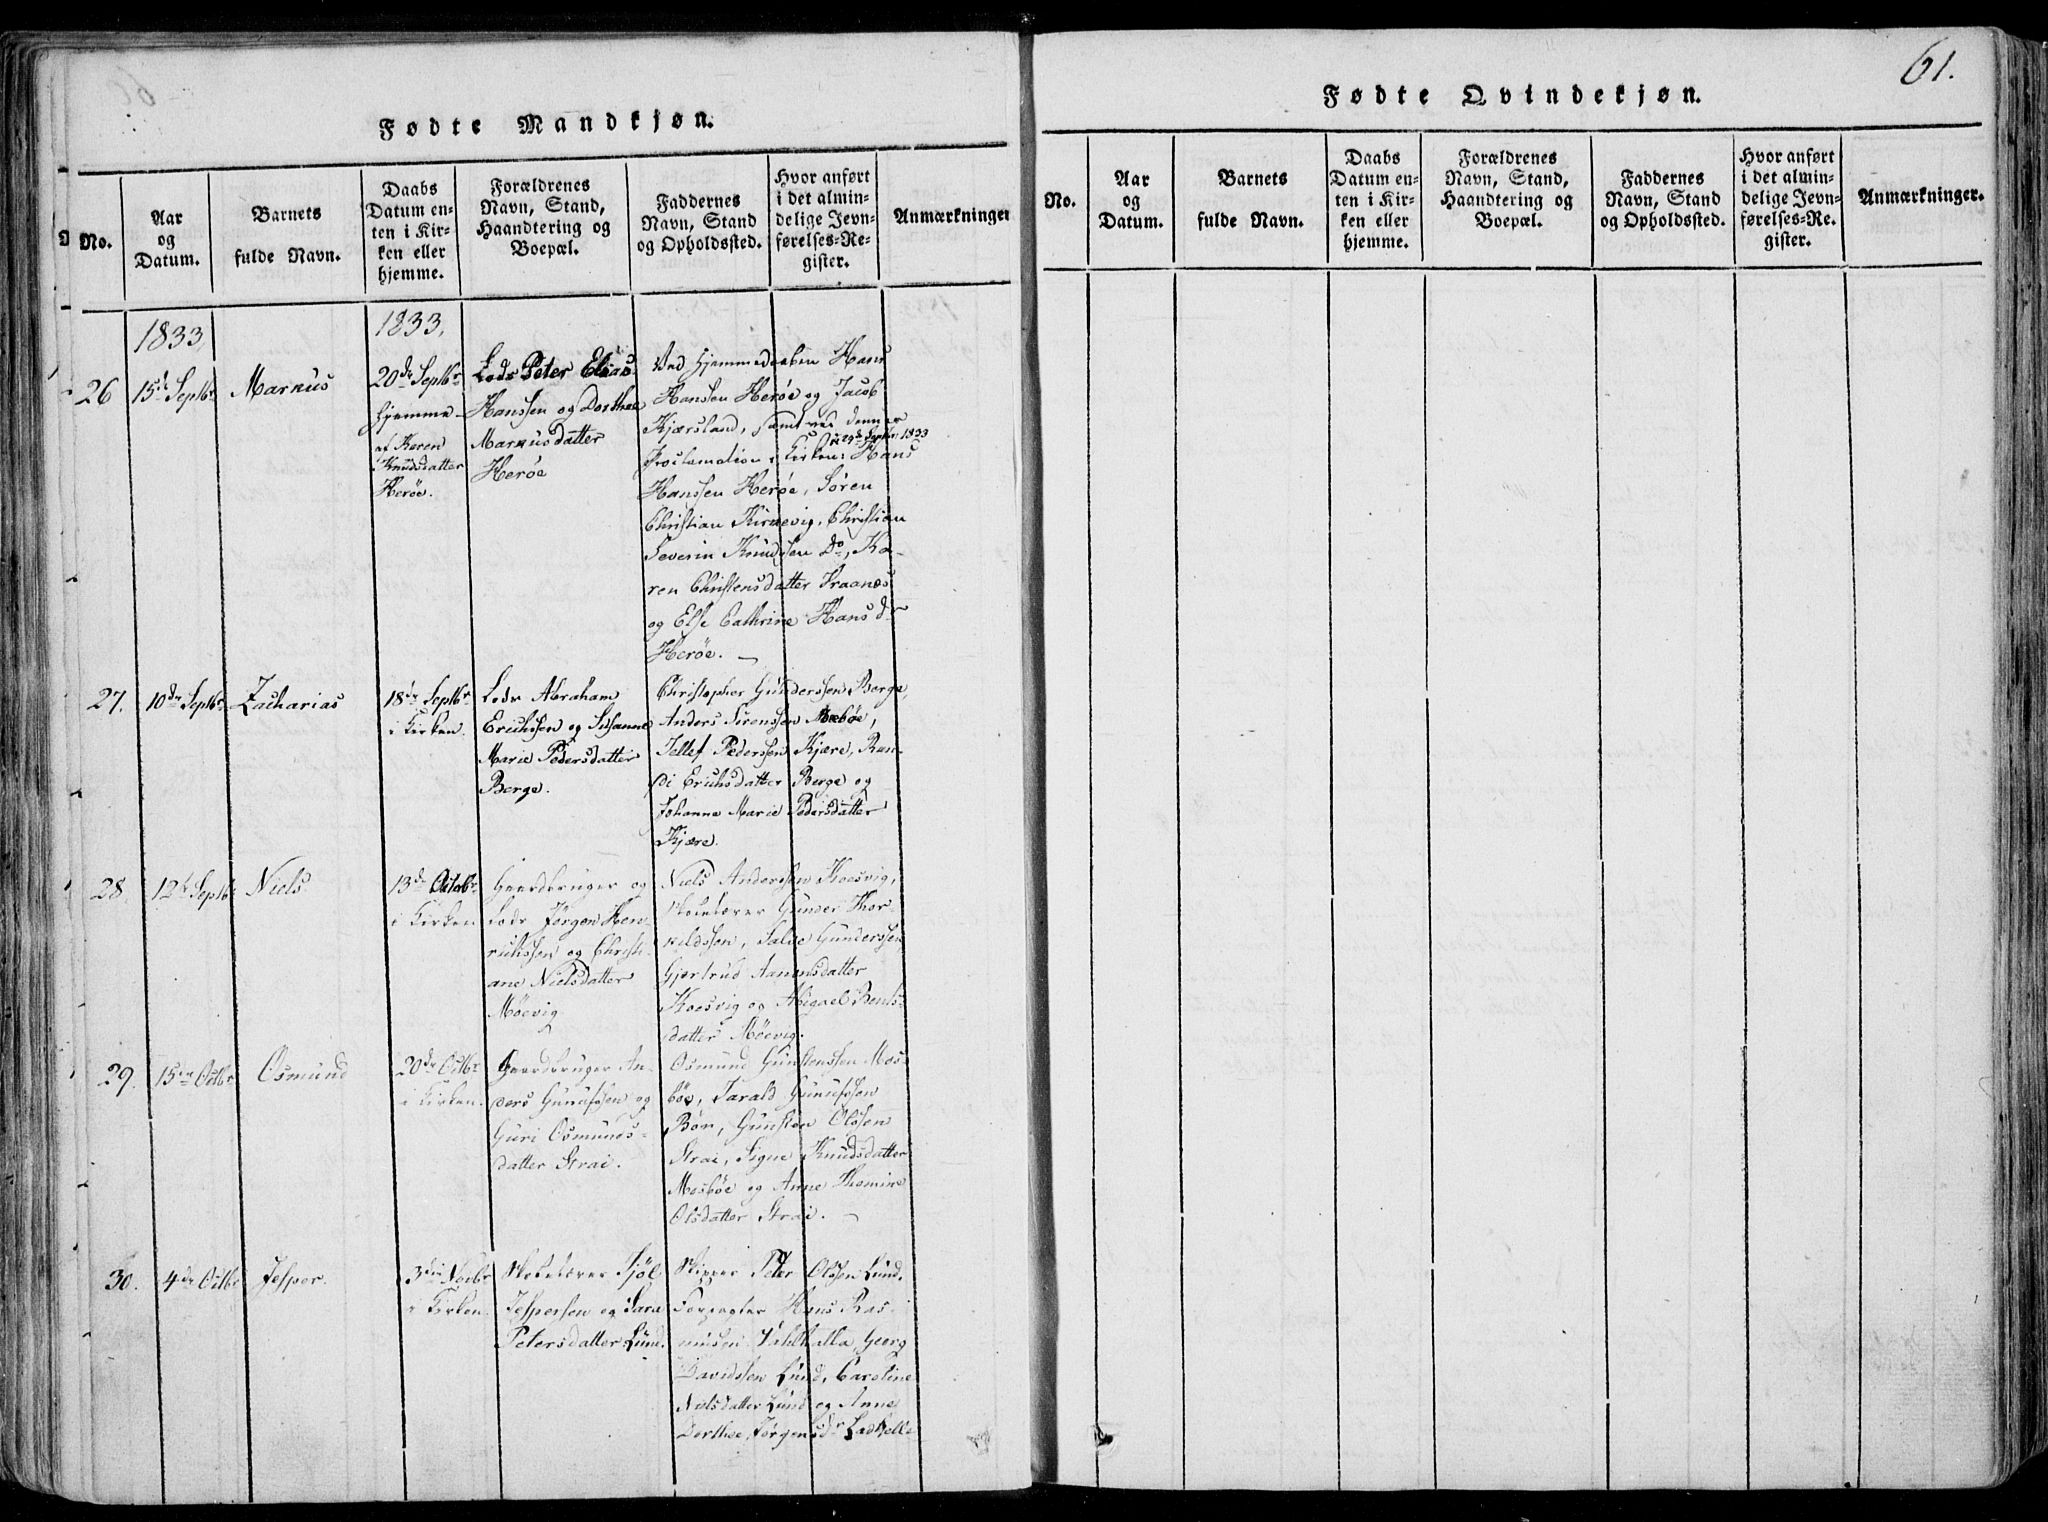 Fødte Mandkjøn.
No.
Aar
og
Datum.
Barnets
fulde Navn.
Daabs
Datum en-
ten i Kir-
ken eller
hjemme.
Forældrenes
Navn, Stand,
Haandtering og
Boepæl.
Faddernes
Navn, Stand
og Opholdssted.
Hvor anført
i det almin-
delige Jevn-
førelses-Re-
gister.
Anmærkninger
1833.
1833.
26
15de Septbr
Markus
20de Septbr
hjemme
af Keren
Knudsdatter
Herøe.
Lods Peter Elias
Hanssen og Dorthee
Markusdatter
Herøe
Ved Hjemmedaaben Hans
Hanssen Herøe og Jacob
Kjørsland, samt ved dennes
d 29de Septbr 1833
Proclamation i Kirken: Hans
Hanssen Herøe, Søren
Christian Kirkevig, Christian
Severin Knudsen Do, Ka-
ren Christensdatter Traanæs
og Else Cathrine Hansdr
Herøe. —
27.
10de Septbr
Zacharias
18de Septbr
i Kirken.
Lods Abraham
Erichssen og Susanne
Marie Pedersdatter
Berge.
Christopher Gundersen Berge,
Anders Sørenssen Mebøe,
Tellef Pederssen Kjære, Ran-
di Erichsdatter Berge og
Johanne Marie Pedersdatter
Kjære.
28.
12te Septbr
Niels
13de Octobr.
i Kirken
Gaardbruger og
Lods Jørgen Hen-
richssen og Christi-
ane Nielsdatter
Møevig
Niels Anderssen Koesvig,
Skolelærer Gunder Thor-
kildssen, Salve Gunderssen
Gjertrud Aanensdatter
Koesvig og Abigael Bents-
datter Møevig.
29.
15de Octbr
Osmund
20de Octbr
i Kirken.
Gaardbruger An-
ders Gunufssen og
Guri Osmunds-
datter Strai.
Osmund Gunstenssen Mos-
bøe, Tarald Gunufssen
Bøn, Gunsten Olssen
Strai, Signe Knudsdatter
Mosbøe og Anne Thomine
Olsdatter Strai. —
30.
4de Octbr
Jesper.
3die Novbr
i Kirken.
Skolelærer Kjøl
Jespersen og Sara
Petersdatter Lund.
Skipper Peter Olssen Lund,
Forpagter Hans Ras-
mussen Vahlhalla, Georg
Davidssen Lund, Caroline
Nielsdatter Lund og Anne
Dorthee Jørgensdr Ladhelle
61.
Fødte Qvindekjøn.
No.
Aar
og
Datum.
Barnets
fulde Navn.
Daabs
Datum en-
ten i Kir-
ken eller
hjemme.
Forældrenes
Navn, Stand,
Haandtering og
Boepæl.
Faddernes
Navn, Stand
og Opholdssted.
Hvor anført
i det almin-
delige Jevn-
førelses-Re-
gister.
Anmærkninger.